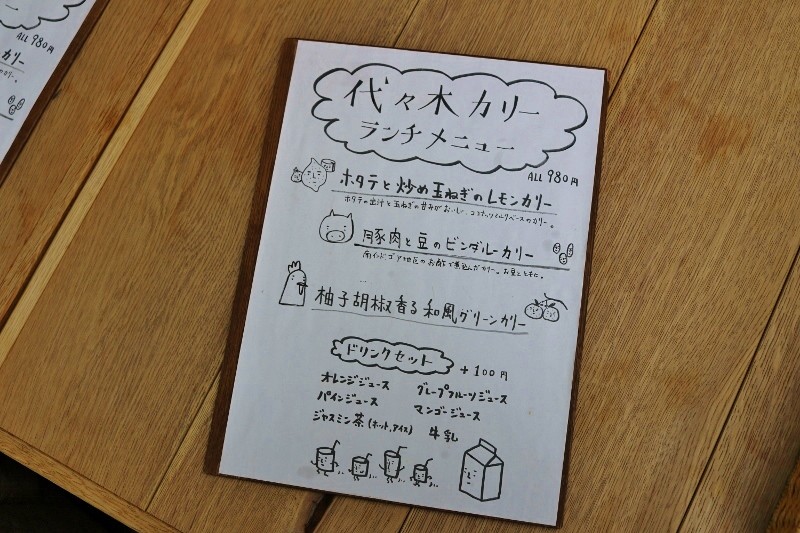 代々木カリー
ランチメニュー
ALL 980円
ホタテと炒め玉ねぎのレモンカリー
ホタテの出汁と玉ねぎの甘みがおいしい、ココナッツミルクベースのカリー。
豚肉と豆のビンダルーカリー
南インド、ゴア地区のお酢で煮込んだカリー。お豆とともに。
柚子胡椒香る和風グリーンカリー
ドリンクセット +100円
オレンジジュース グレープフルーツジュース
パインジュース マンゴージュース
ジャスミン茶(ホット,アイス) 牛乳
ALL 980円
カリー
カリー。